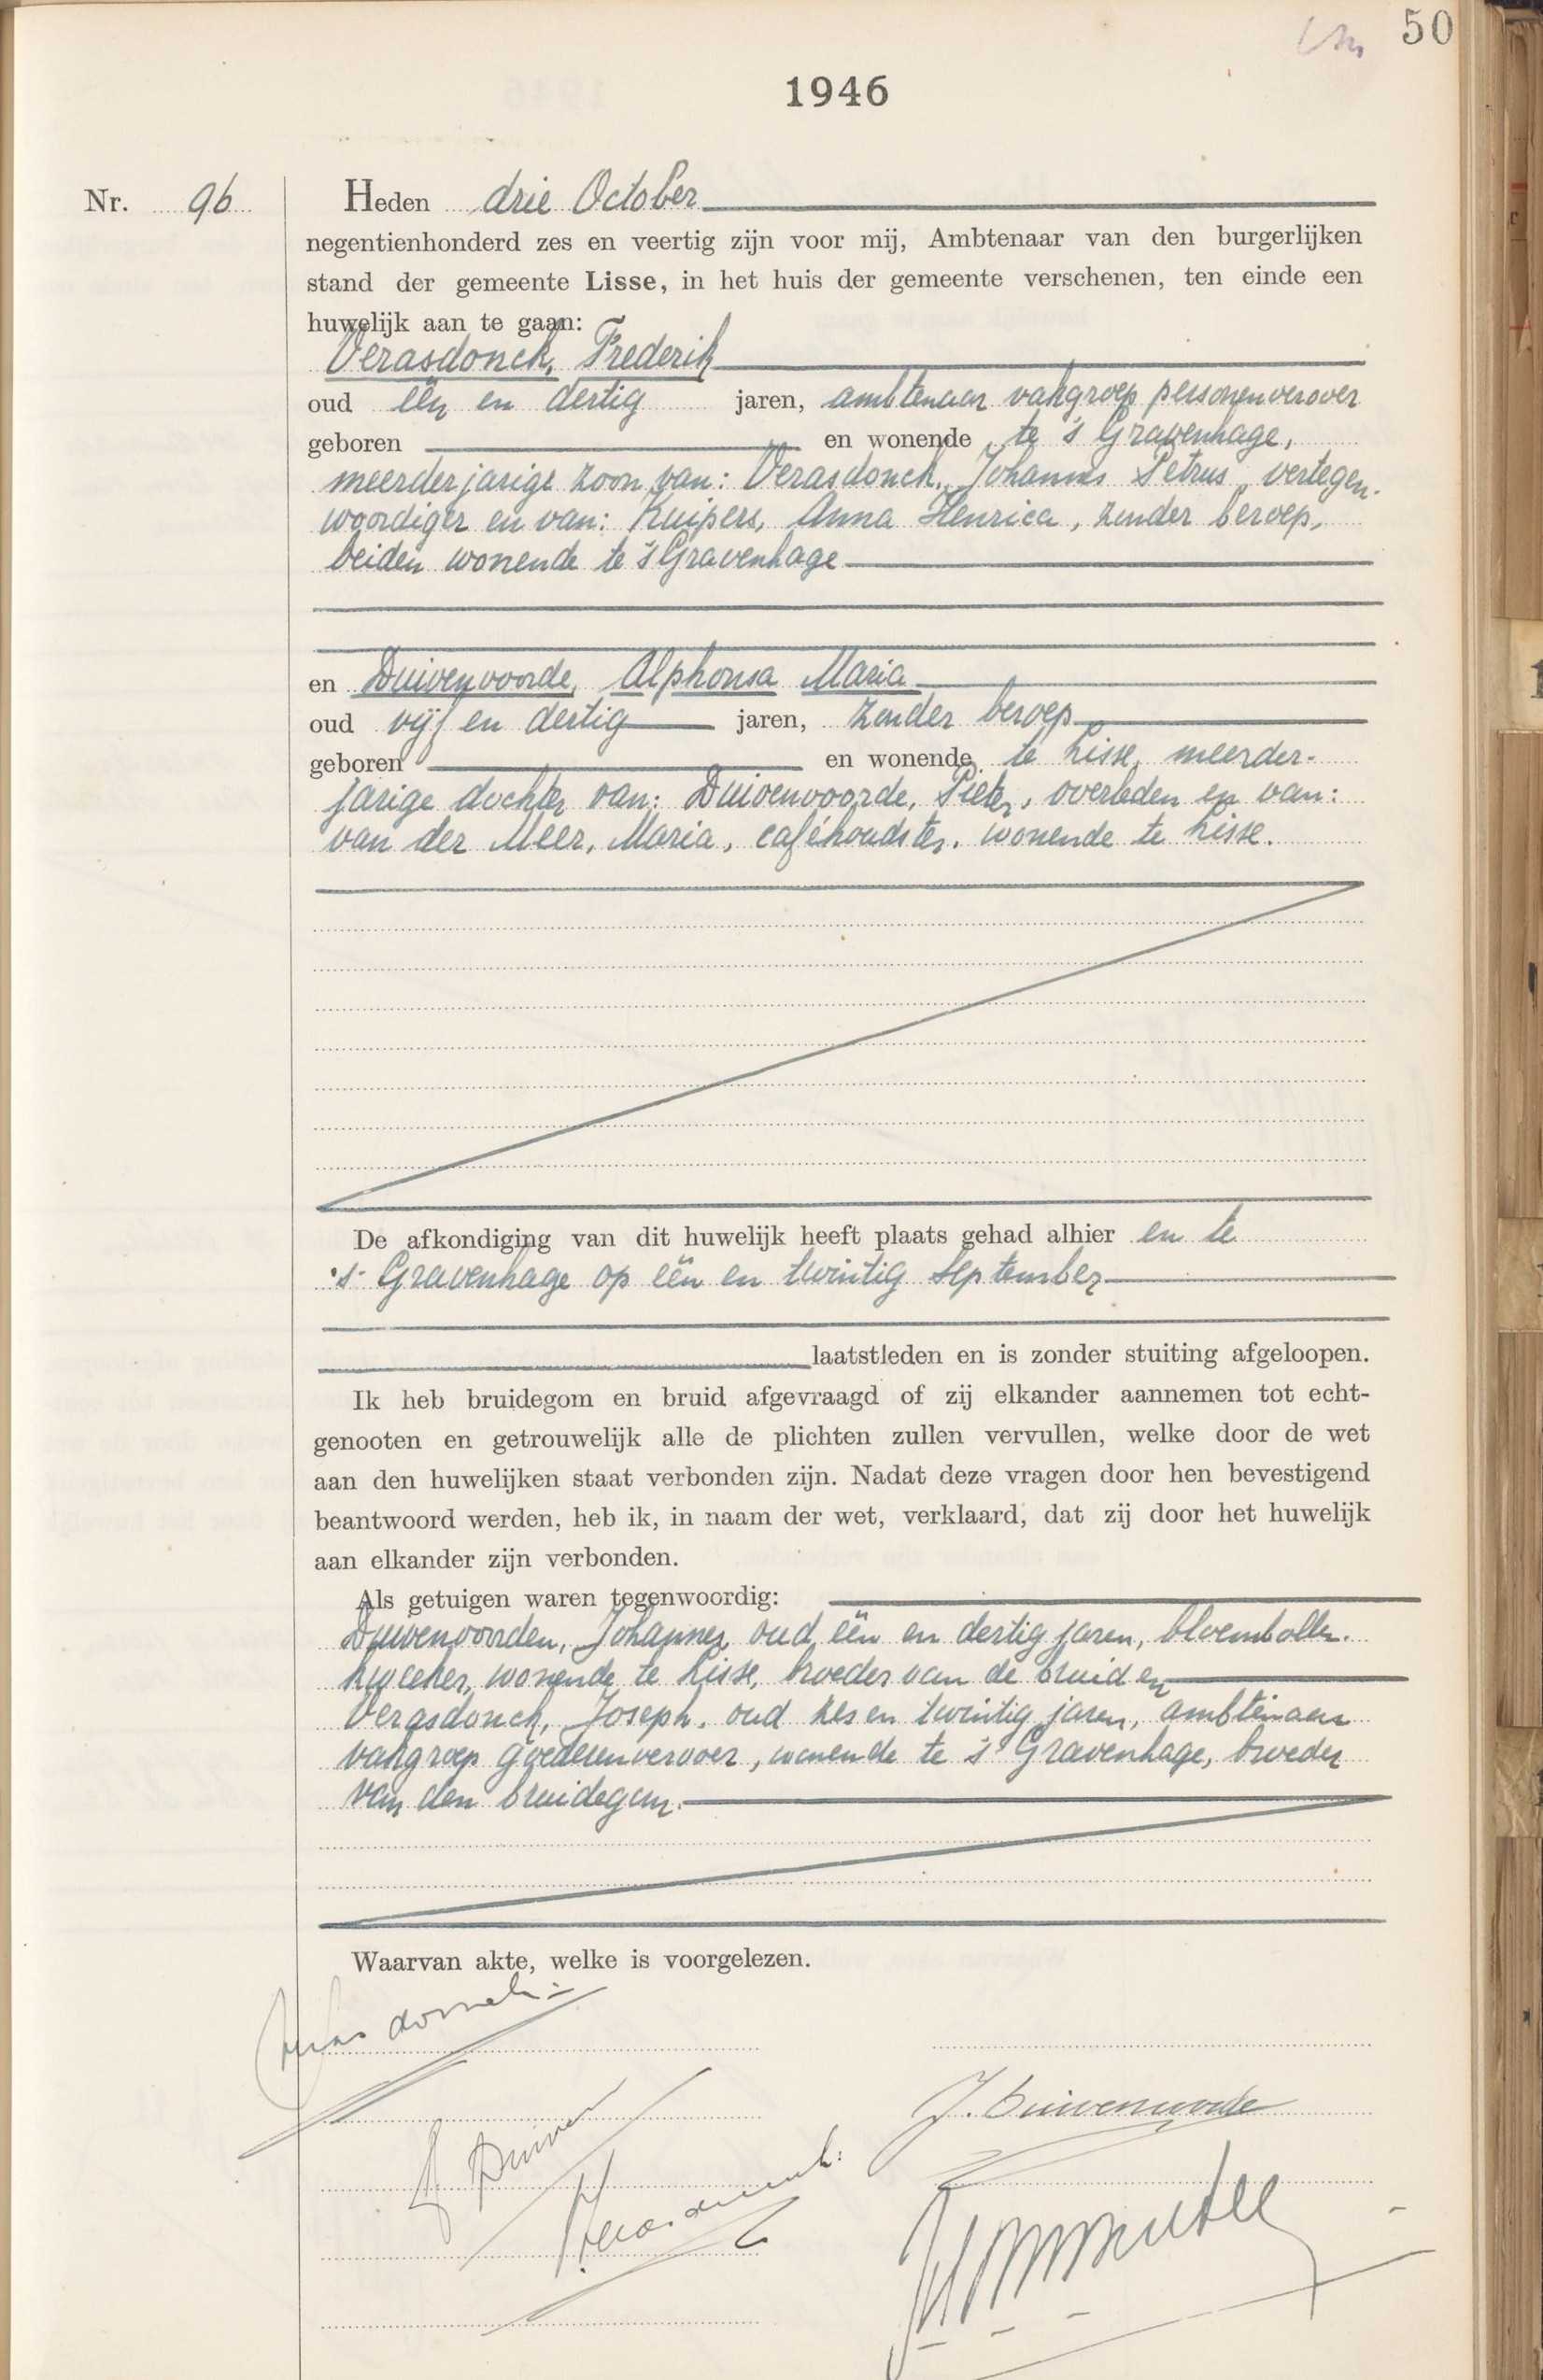 50
1946
Nr. 96
Heden drie October
negentienhonderd zes en veertig zijn voor mij, Ambtenaar van den burgerlijken
stand der gemeente Lisse, in het huis der gemeente verschenen, ten einde een
huwelijk aan te gaan:
Verasdonck, Frederik
oud één en dertig jaren, ambtenaar vakgroep personenverover
geboren en wonende te 's Gravenhage,
meerderjarige zoon van: Verasdonck, Johannes Petrus, vertegen-
woordiger en van: Kuipers, Anna Henrica, zonder beroep,
beiden wonende te 's Gravenhage
en Duivenvoorde, Alphonsa Maria
oud vijf en dertig jaren, zonder beroep
geboren en wonende te Lisse, meerder-
jarige dochter van: Duivenvoorde, Pieter, overleden en van:
van der Meer, Maria, caféhoudster, wonende te Lisse.
De afkondiging van dit huwelijk heeft plaats gehad alhier en te
's-Gravenhage op één en twintig September
laatstleden en is zonder stuiting afgeloopen.
Ik heb bruidegom en bruid afgevraagd of zij elkander aannemen tot echt-
genooten en getrouwelijk alle de plichten zullen vervullen, welke door de wet
aan den huwelijken staat verbonden zijn. Nadat deze vragen door hen bevestigend
beantwoord werden, heb ik, in naam der wet, verklaard, dat zij door het huwelijk
aan elkander zijn verbonden.
Als getuigen waren tegenwoordig:
Duivenvoorden, Johannes, oud één en dertig jaren, bloembollen-
kweeker, wonende te Lisse, broeder van de bruid en
Verasdonck, Joseph, oud zes en twintig jaren, ambtenaar
vakgroep goederenvervoer, wonende te 's Gravenhage, broeder
van den bruidegom.
Waarvan akte, welke is voorgelezen.
Verasdonck
J. Duivenvoorde
Verasdonck